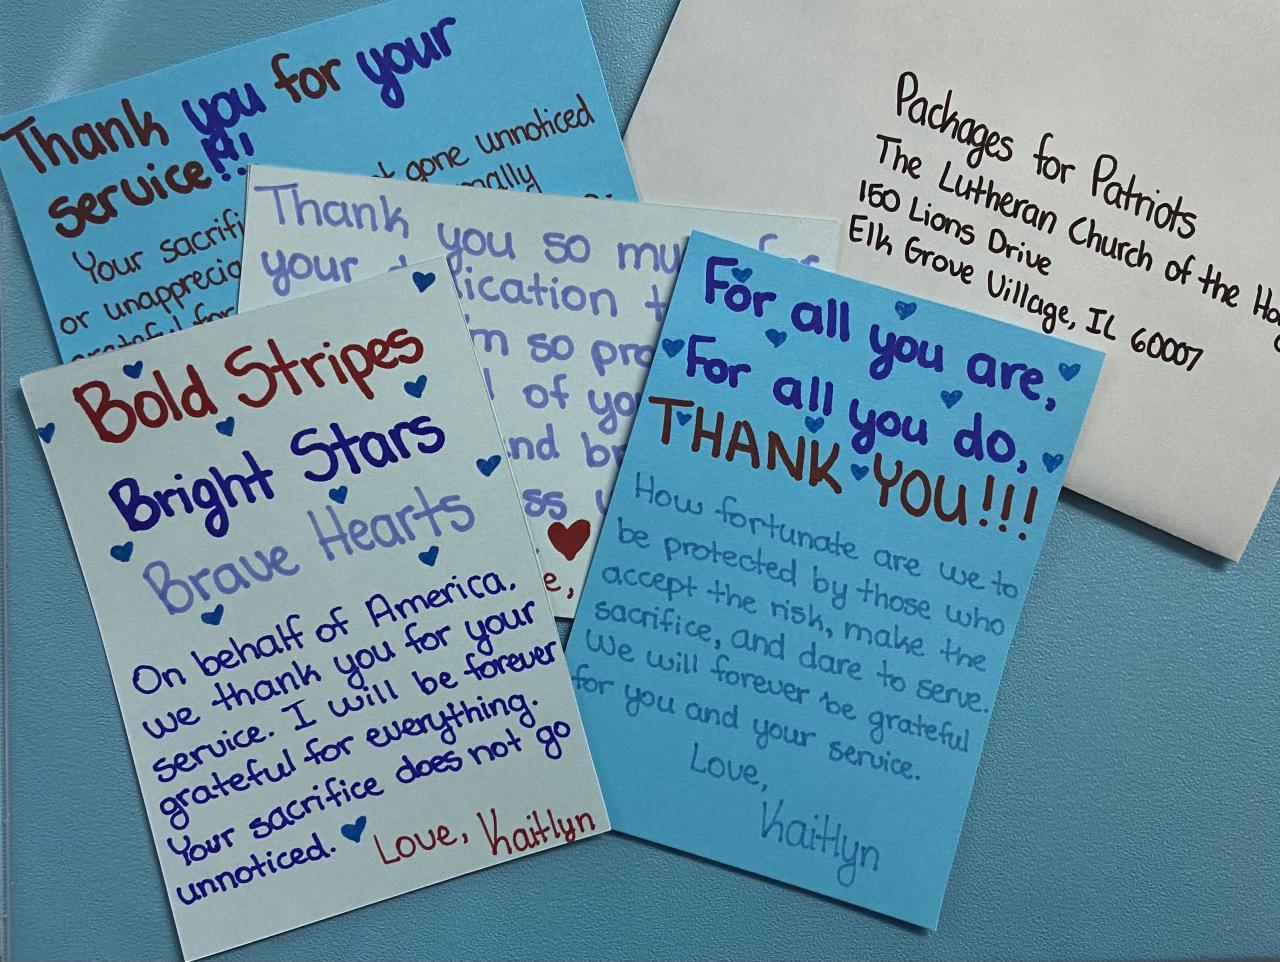 Thank you for your
service!!!
gone unnoticed
Your
or
Thank you so
your
so
of
Packages for Patriots
The Lutheran Church of the
150 Lions Drive
Elk Grove Village, IL 60007
Bold Stripes
Bright Stars
Brave Hearts
On behalf of America,
we thank you for your
service. I will be forever
grateful for everything.
Your sacrifice does not go
unnoticed.
Love, Kaitlyn
For all you are,
For all you do,
THANK YOU!!!
How fortunate are we to
be protected by those who
accept the risk, make the
sacrifice, and dare to serve.
We will forever be grateful
for you and your service.
Love,
Kaitlyn